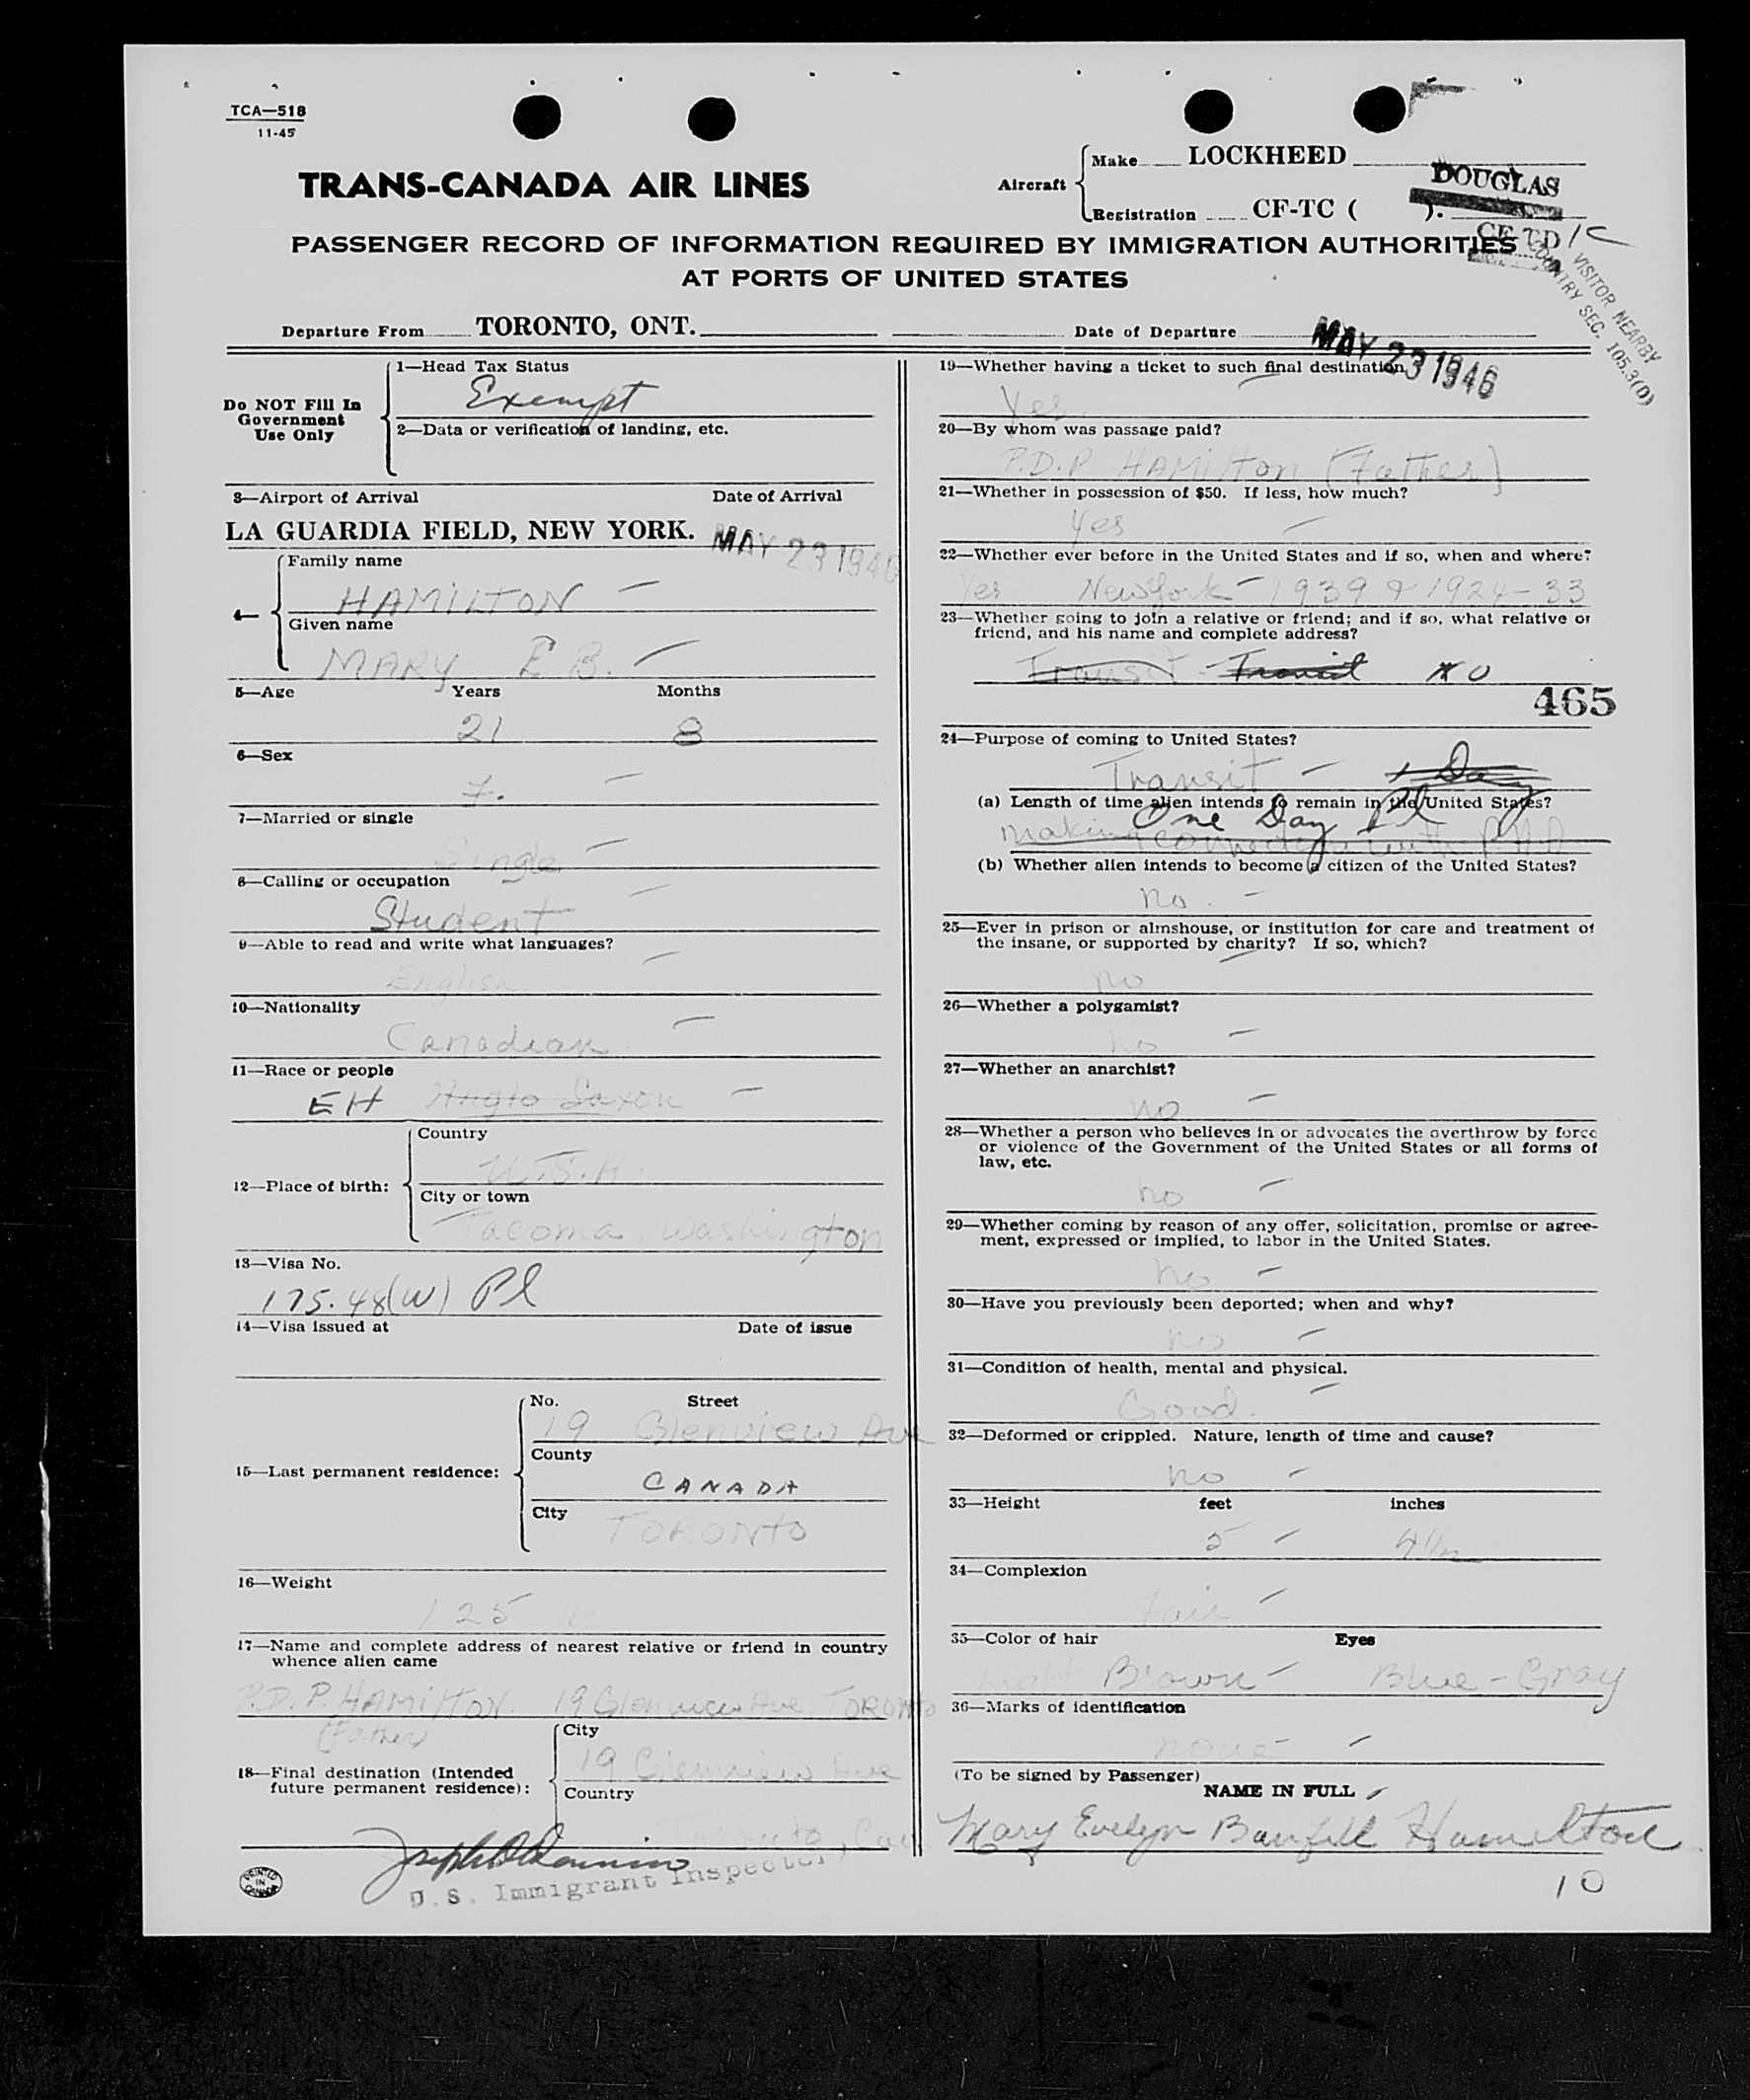 TCA—518
11-45
TRANS-CANADA AIR LINES
Aircraft
Make LOCKHEED
DOUGLAS
Registration CF-TC ( ).
CF-TD
PASSENGER RECORD OF INFORMATION REQUIRED BY IMMIGRATION AUTHORITIES
AT PORTS OF UNITED STATES
VISITOR NEARBY
COUNTRY SEC. 105.3(D)
Departure From TORONTO, ONT.
Date of Departure MAY 23 1946
Do NOT Fill In
Government
Use Only
1—Head Tax Status
Exempt
2—Data or verification of landing, etc.
3—Airport of Arrival Date of Arrival
LA GUARDIA FIELD, NEW YORK. MAY 23 1946
4—
Family name
HAMILTON
Given name
MARY E B.
5—Age Years Months
21 8
6—Sex
F.
7—Married or single
Single
8—Calling or occupation
Student
9—Able to read and write what languages?
English
10—Nationality
Canadian
11—Race or people
EH Anglo Saxon
12—Place of birth:
Country
U.S.A.
City or town
Tacoma, Washington
13—Visa No.
175.48(W) Pl
14—Visa issued at Date of issue
15—Last permanent residence:
No. Street
19 Glenview Ave
County
CANADA
City
TORONTO
16—Weight
125
17—Name and complete address of nearest relative or friend in country
whence alien came
P.D.P. HAMILTON 19 Glenview Ave. TORONTO
(Father)
18—Final destination (Intended
future permanent residence):
City
19 Glenview Ave
Country
Toronto, Can
U.S. Immigrant Inspector
PRINTED
IN
CANADA
19—Whether having a ticket to such final destination
Yes
20—By whom was passage paid?
P.D.P HAMILTON (Father)
21—Whether in possession of $50. If less, how much?
Yes
22—Whether ever before in the United States and if so, when and where?
Yes New York - 1939 & 1924-33
23—Whether going to join a relative or friend; and if so, what relative or
friend, and his name and complete address?
Transit - Transit NO
465
24—Purpose of coming to United States?
Transit - 1 Day
(a) Length of time alien intends to remain in the United States?
One Day Pl
making connection with
(b) Whether alien intends to become a citizen of the United States?
no. -
25—Ever in prison or almshouse, or institution for care and treatment of
the insane, or supported by charity? If so, which?
no
26—Whether a polygamist?
no
27—Whether an anarchist?
no
28—Whether a person who believes in or advocates the overthrow by force
or violence of the Government of the United States or all forms of
law, etc.
no
29—Whether coming by reason of any offer, solicitation, promise or agree-
ment, expressed or implied, to labor in the United States.
no
30—Have you previously been deported; when and why?
no
31—Condition of health, mental and physical.
Good.
32—Deformed or crippled. Nature, length of time and cause?
no
33—Height feet inches
5 4 1/2
34—Complexion
fair
35—Color of hair Eyes
Light Brown Blue-Gray
36—Marks of identification
none
(To be signed by Passenger)
NAME IN FULL
Mary Evelyn Banfill Hamilton
10